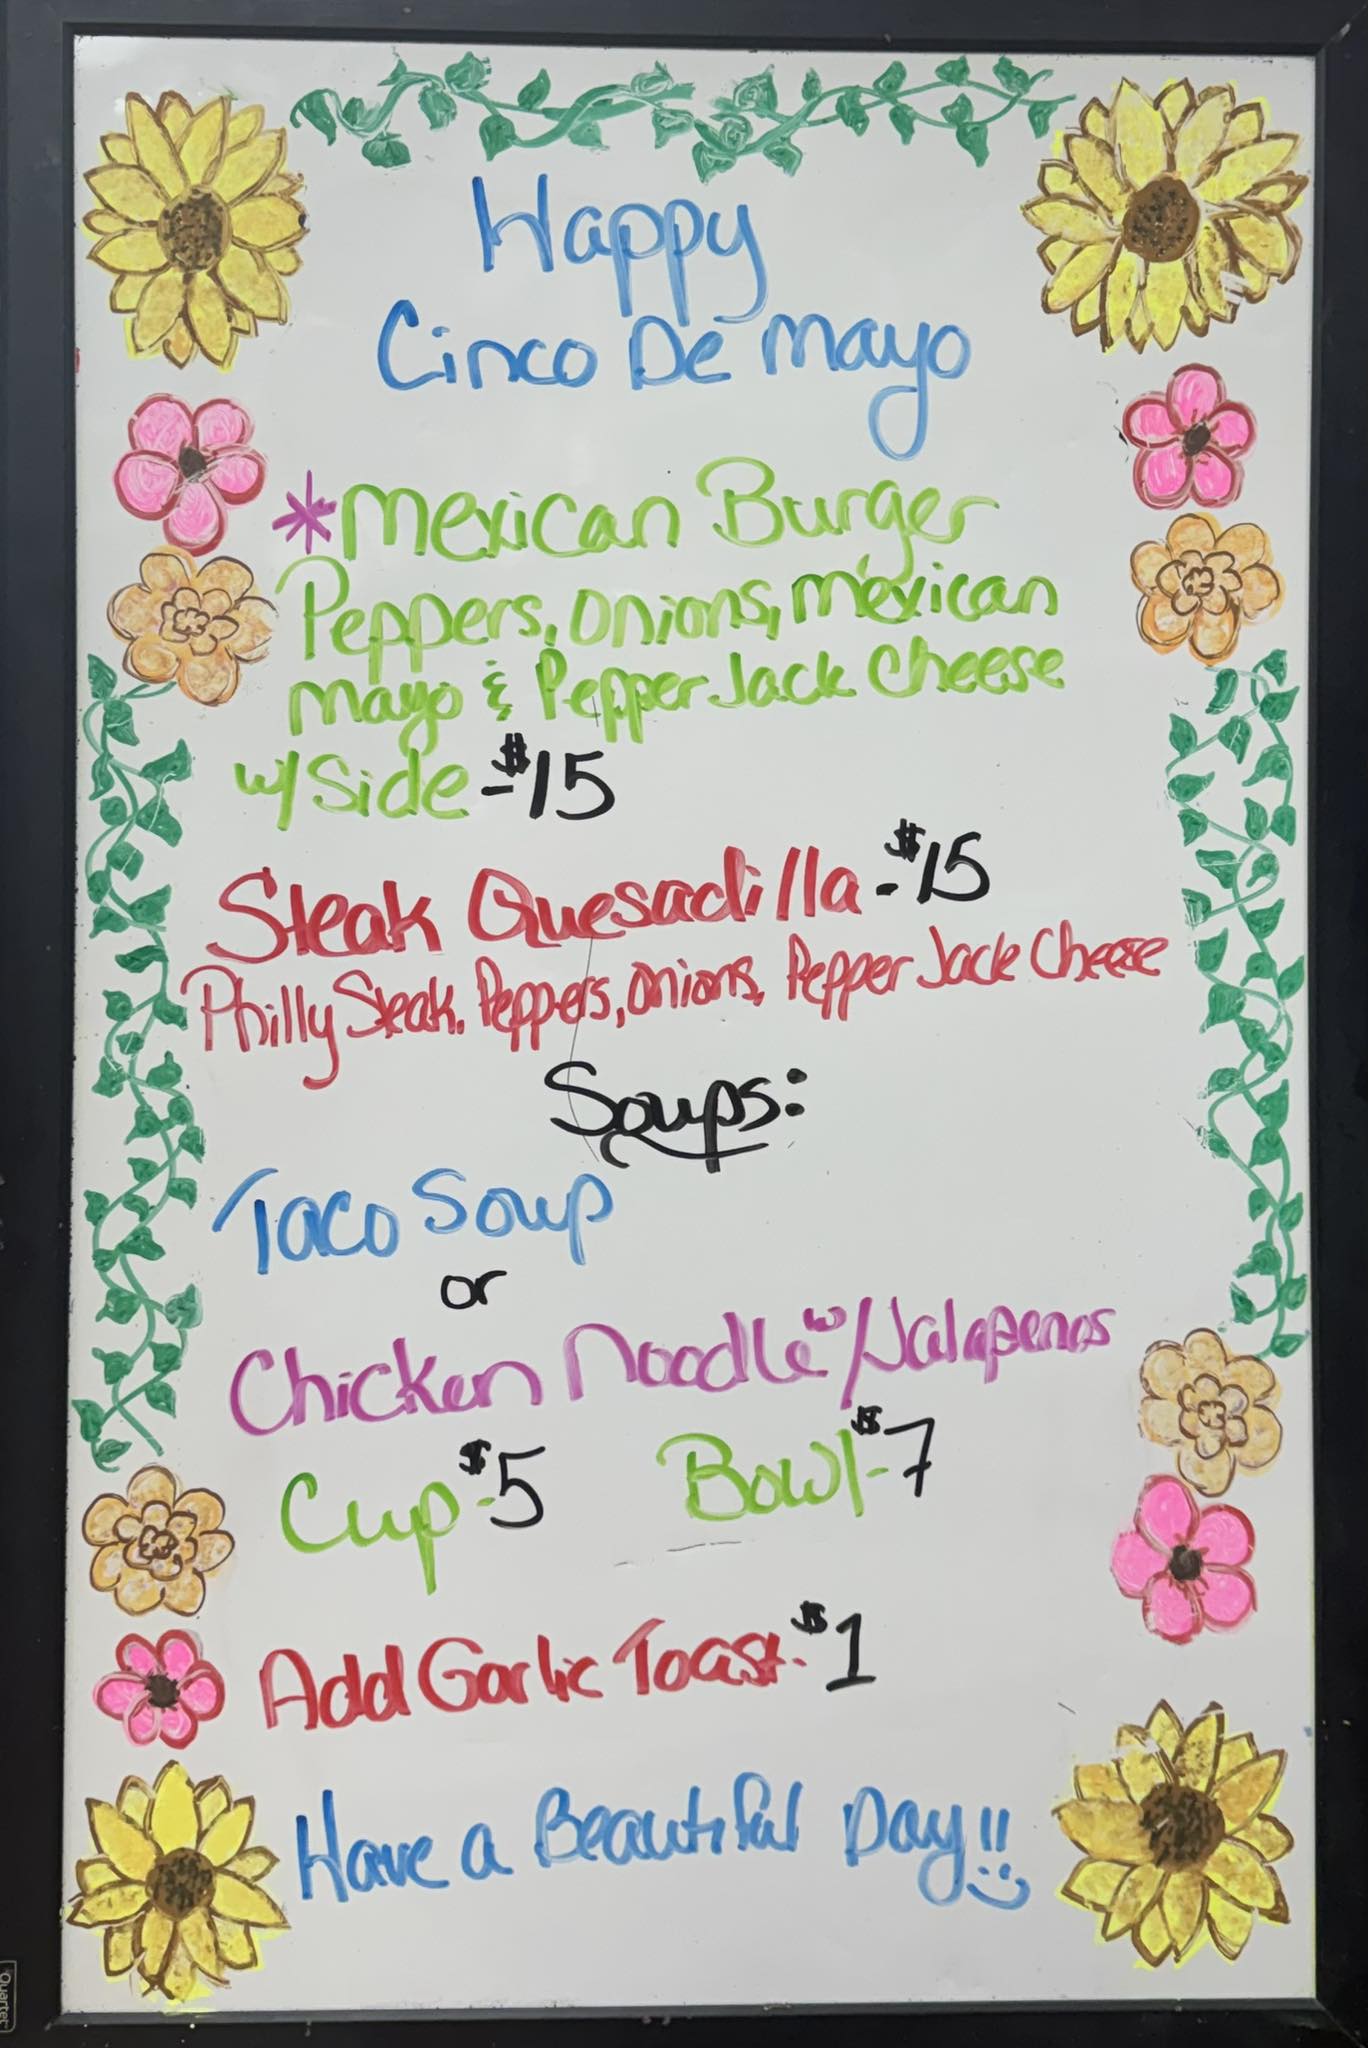 Happy
Cinco De Mayo
*Mexican Burger
Peppers, onions, Mexican
Mayo & Pepper Jack Cheese
w/ Side -$15
Steak Quesadilla -$15
Philly Steak, Peppers, onions, Pepper Jack Cheese
Soups:
Taco Soup
or
Chicken Noodle w/Jalapenos
Cup-$5 Bowl-$7
Add Garlic Toast-$1
Have a Beautiful Day!!
Quartet